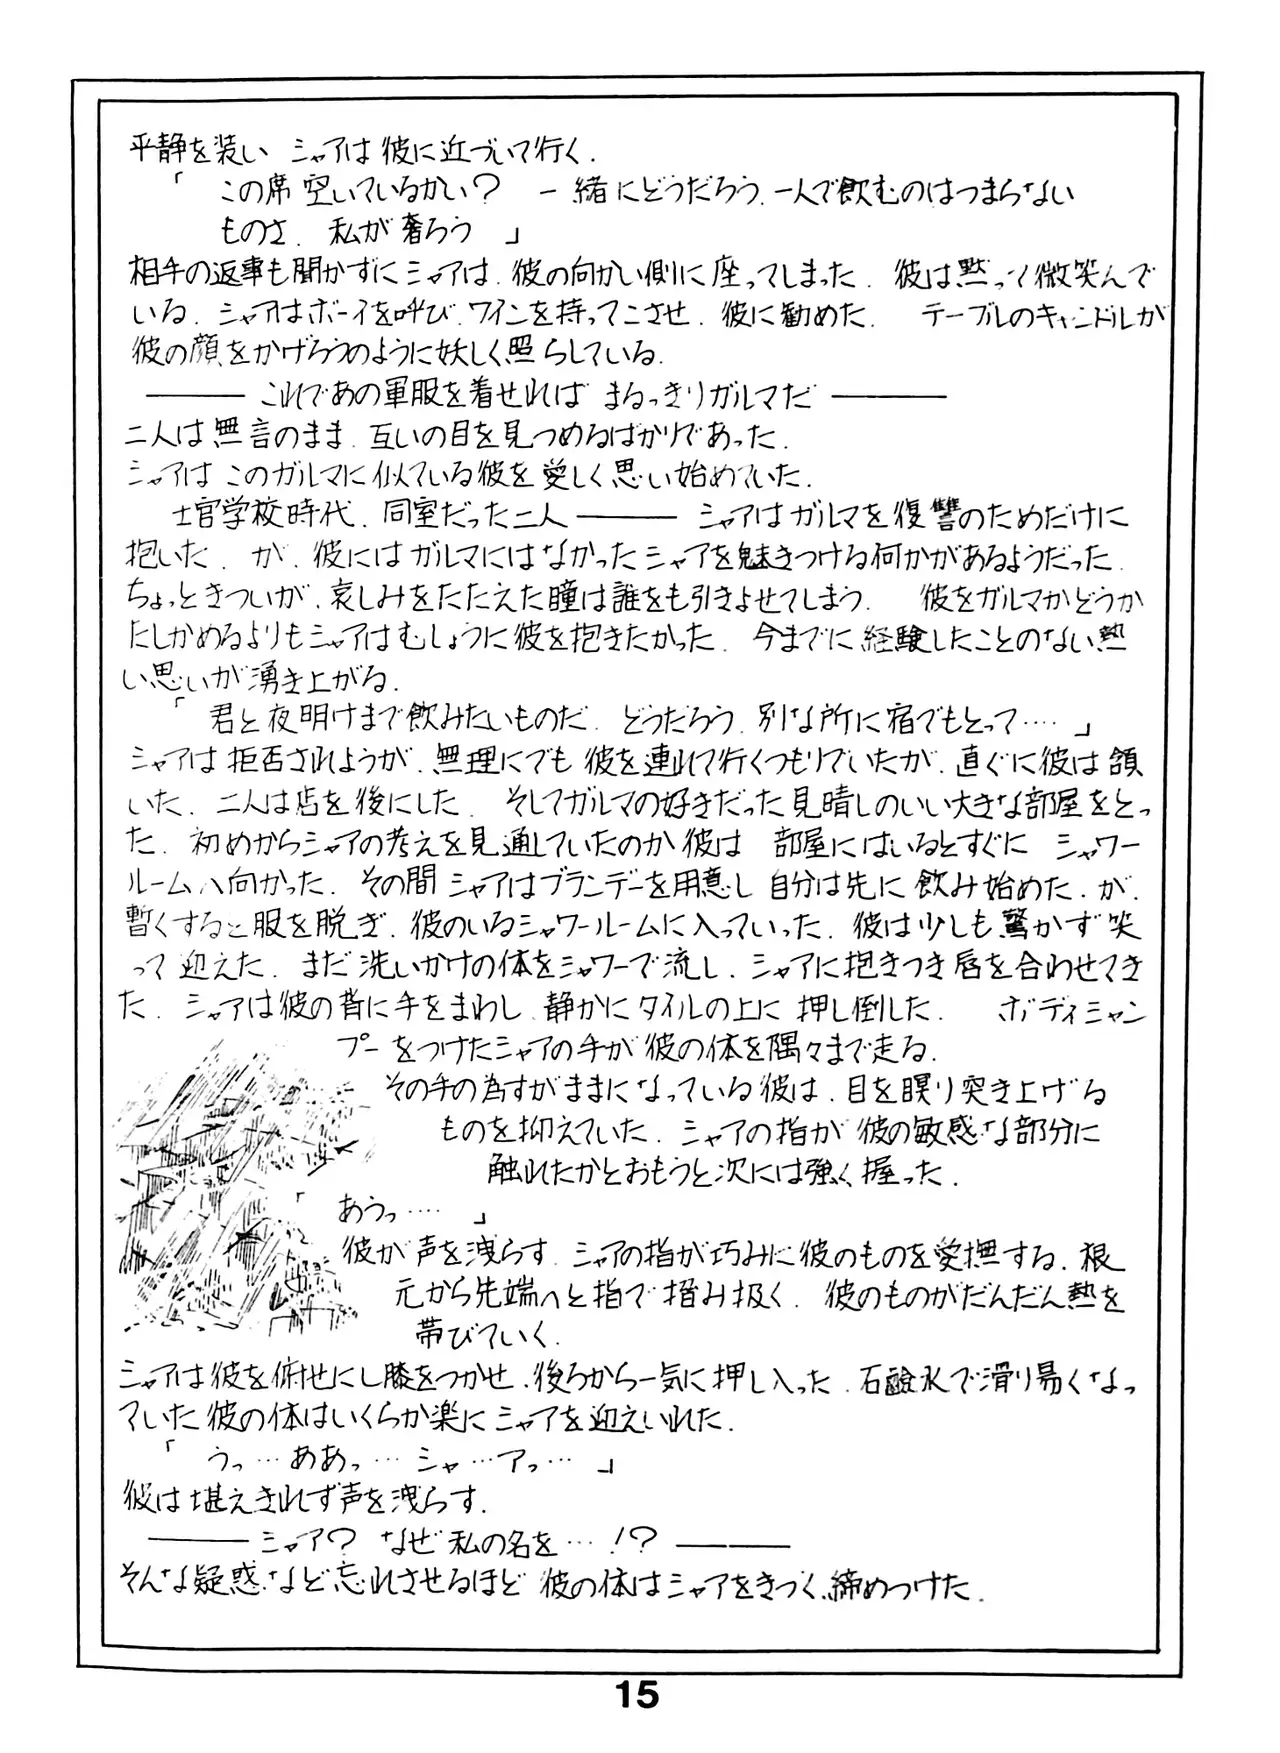 平静を装い シャアは彼に近づいて行く.
「 この席空いているかい? 一緒にどうだろう. 一人で飲むのはつまらない
ものさ. 私が奢ろう 」
相手の返事も聞かずにシャアは. 彼の向かい側に座ってしまった. 彼は黙って微笑んで
いる. シャアはボーイを呼び. ワインを持ってこさせ. 彼に勧めた. テーブルのキャンドルが
彼の顔をかげろうのように妖しく照らしている.
――― これであの軍服を着せれば まるっきりガルマだ ―――
二人は無言のまま. 互いの目を見つめるばかりであった.
シャアはこのガルマに似ている彼を愛しく思い始めていた.
士官学校時代. 同室だった二人 ――― シャアはガルマを復讐のためだけに
抱いた. が. 彼にはガルマにはなかったシャアを魅きつける何かがあるようだった.
ちょっときついが. 哀しみをたたえた瞳は誰をも引きよせてしまう. 彼をガルマかどうか
たしかめるよりもシャアはむしょうに彼を抱きたかった. 今までに経験したことのない熱
い思いが湧き上がる.
「 君と夜明けまで飲みたいものだ. どうだろう. 別な所に宿でもとって…… 」
シャアは拒否されようが. 無理にでも彼を連れて行くつもりでいたが. 直ぐに彼は頷
いた. 二人は店を後にした. そしてガルマの好きだった見晴しのいい大きな部屋をとっ
た. 初めからシャアの考えを見通していたのか彼は 部屋にはいるとすぐに シャワー
ルームへ向かった. その間シャアはブランデーを用意し自分は先に飲み始めた. が.
暫くすると服を脱ぎ. 彼のいるシャワールームに入っていった. 彼は少しも驚かず笑
って迎えた. まだ洗いかけの体をシャワーで流し. シャアに抱きつき唇を合わせてき
た. シャアは彼の背に手をまわし. 静かにタイルの上に押し倒した. ボディシャン
プーをつけたシャアの手が彼の体を隅々まで走る.
その手の為すがままになっている彼は. 目を瞑り突き上げる
ものを抑えていた. シャアの指が彼の敏感な部分に
触れたかとおもうと次には強く握った.
「 あうっ…… 」
彼が声を洩らす. シャアの指が巧みに彼のものを愛撫する. 根
元から先端へと指で揉み扱く. 彼のものがだんだん熱を
帯びていく.
シャアは彼を俯せにし膝をつかせ. 後ろから一気に押し入った. 石鹸水で滑り易くなっ
ていた彼の体はいくらか楽にシャアを迎えいれた.
「 うっ…ああっ…シャ…アっ… 」
彼は堪えきれず声を洩らす.
――― シャア? なぜ私の名を…!? ―――
そんな疑惑など忘れさせるほど彼の体はシャアをきつく締めつけた.
15